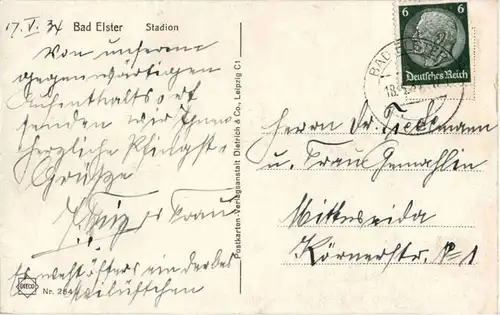 17. V. 34 Bad Elster Stadion
Von unserem
gegenwärtigen
Aufenthaltsort
senden wir Ihnen
herzliche Pfingst-
Grüße
Frau
Es weht öfters ein derbes
lüftchen
DIECO
Nr. 284
Postkarten-Verlagsanstalt Dietrich & Co., Leipzig C1
6 6
Deutsches Reich
BAD ELSTER
Herrn Dr.
u. Frau Gemahlin
Mittweida
Körnerstr. No 1